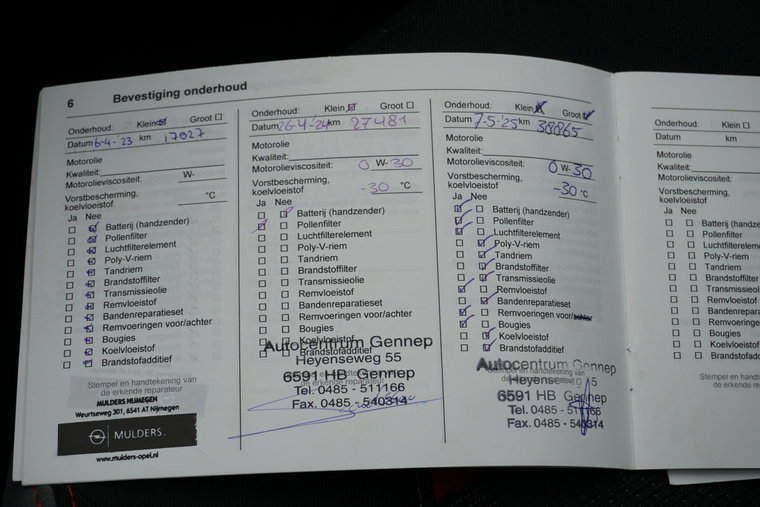 6 Bevestiging onderhoud
Onderhoud: Klein ☒ Groot ☐
Datum 6-4-23 km 17027
Motorolie
Kwaliteit:
Motorolieviscositeit: W-
Vorstbescherming,
koelvloeistof °C
Ja Nee
☐ ☑ Batterij (handzender)
☐ ☑ Pollenfilter
☐ ☑ Luchtfilterelement
☐ ☑ Poly-V-riem
☐ ☑ Tandriem
☐ ☑ Brandstoffilter
☐ ☑ Transmissieolie
☐ ☑ Remvloeistof
☐ ☑ Bandenreparatieset
☐ ☑ Remvoeringen voor/achter
☐ ☑ Bougies
☐ ☑ Koelvloeistof
☐ ☑ Brandstofadditief
Stempel en handtekening van
de erkende reparateur
MULDERS NIJMEGEN
Weurtseweg 301, 6541 AT Nijmegen
MULDERS.
www.mulders-opel.nl
Onderhoud: Klein ☑ Groot ☐
Datum 26-4-24 km 27481
Motorolie
Kwaliteit:
Motorolieviscositeit: 0 W-30
Vorstbescherming,
koelvloeistof -30 °C
Ja Nee
☐ ☑ Batterij (handzender)
☑ ☐ Pollenfilter
☐ ☐ Luchtfilterelement
☐ ☐ Poly-V-riem
☐ ☐ Tandriem
☐ ☐ Brandstoffilter
☐ ☐ Transmissieolie
☐ ☐ Remvloeistof
☐ ☐ Bandenreparatieset
☐ ☐ Remvoeringen voor/achter
☐ ☐ Bougies
☐ ☐ Koelvloeistof
☐ ☐ Brandstofadditief
Autocentrum Gennep
Heyenseweg 55
6591 HB Gennep
de erkende reparateur
Tel. 0485 - 511166
Fax. 0485 - 540314
Onderhoud: Klein ☒ Groot ☑
Datum 7-5-25 km 38865
Motorolie
Kwaliteit:
Motorolieviscositeit: 0 W-30
Vorstbescherming,
koelvloeistof -30 °C
Ja Nee
☑ ☐ Batterij (handzender)
☑ ☐ Pollenfilter
☑ ☐ Luchtfilterelement
☐ ☑ Poly-V-riem
☐ ☑ Tandriem
☐ ☑ Brandstoffilter
☐ ☑ Transmissieolie
☑ ☐ Remvloeistof
☐ ☑ Bandenreparatieset
☑ ☐ Remvoeringen voor/achter
☑ ☐ Bougies
☐ ☑ Koelvloeistof
☐ ☑ Brandstofadditief
Autocentrum Gennep
Stempel en handtekening van
6591 HB Gennep
Tel. 0485 - 511166
Fax. 0485 - 540314
Onderhoud: Klein ☐
Datum km
Motorolie
Kwaliteit:
Motorolieviscositeit:
Vorstbescherming,
koelvloeistof
Ja Nee
☐ ☐ Batterij (handze
☐ ☐ Pollenfilter
☐ ☐ Luchtfilterelem
☐ ☐ Poly-V-riem
☐ ☐ Tandriem
☐ ☐ Brandstoffilter
☐ ☐ Transmissieo
☐ ☐ Remvloeistof
☐ ☐ Bandenrepara
☐ ☐ Remvoeringe
☐ ☐ Bougies
☐ ☐ Koelvloeistof
☐ ☐ Brandstofad
Stempel en handt
de erkende re